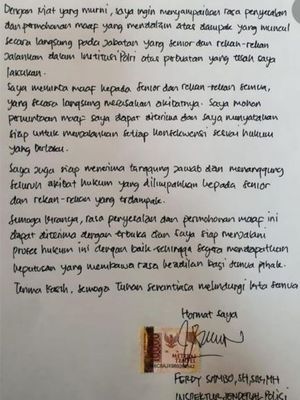 Dengan niat yang murni, saya ingin menyampaikan rasa penyesalan
dan permohonan maaf yang mendalam atas dampak yang muncul
secara langsung pada jabatan yang senior dan rekan-rekan
jalankan dalam institusi Polri atas perbuatan yang telah saya
lakukan.
Saya meminta maaf kepada senior dan rekan-rekan semua,
yang secara langsung merasakan akibatnya. Saya mohon
permintaan maaf saya dapat diterima dan saya menyatakan
siap untuk menjalankan setiap konsekuensi sesuai hukum
yang berlaku.
Saya juga siap menerima tanggung jawab dan menanggung
seluruh akibat hukum yang dilimpahkan kepada senior
dan rekan-rekan yang terdampak.
Semoga kiranya, rasa penyesalan dan permohonan maaf ini
dapat diterima dengan terbuka dan saya siap menjalani
proses hukum ini dengan baik sehingga segera mendapatkan
keputusan yang membawa rasa keadilan bagi semua pihak.
Terima kasih, semoga Tuhan senantiasa melindungi kita semua
Hormat saya
10000
METERAI
TEMPEL
FERDY SAMBO, SH, SIK, MH
INSPEKTUR JENDERAL POLISI